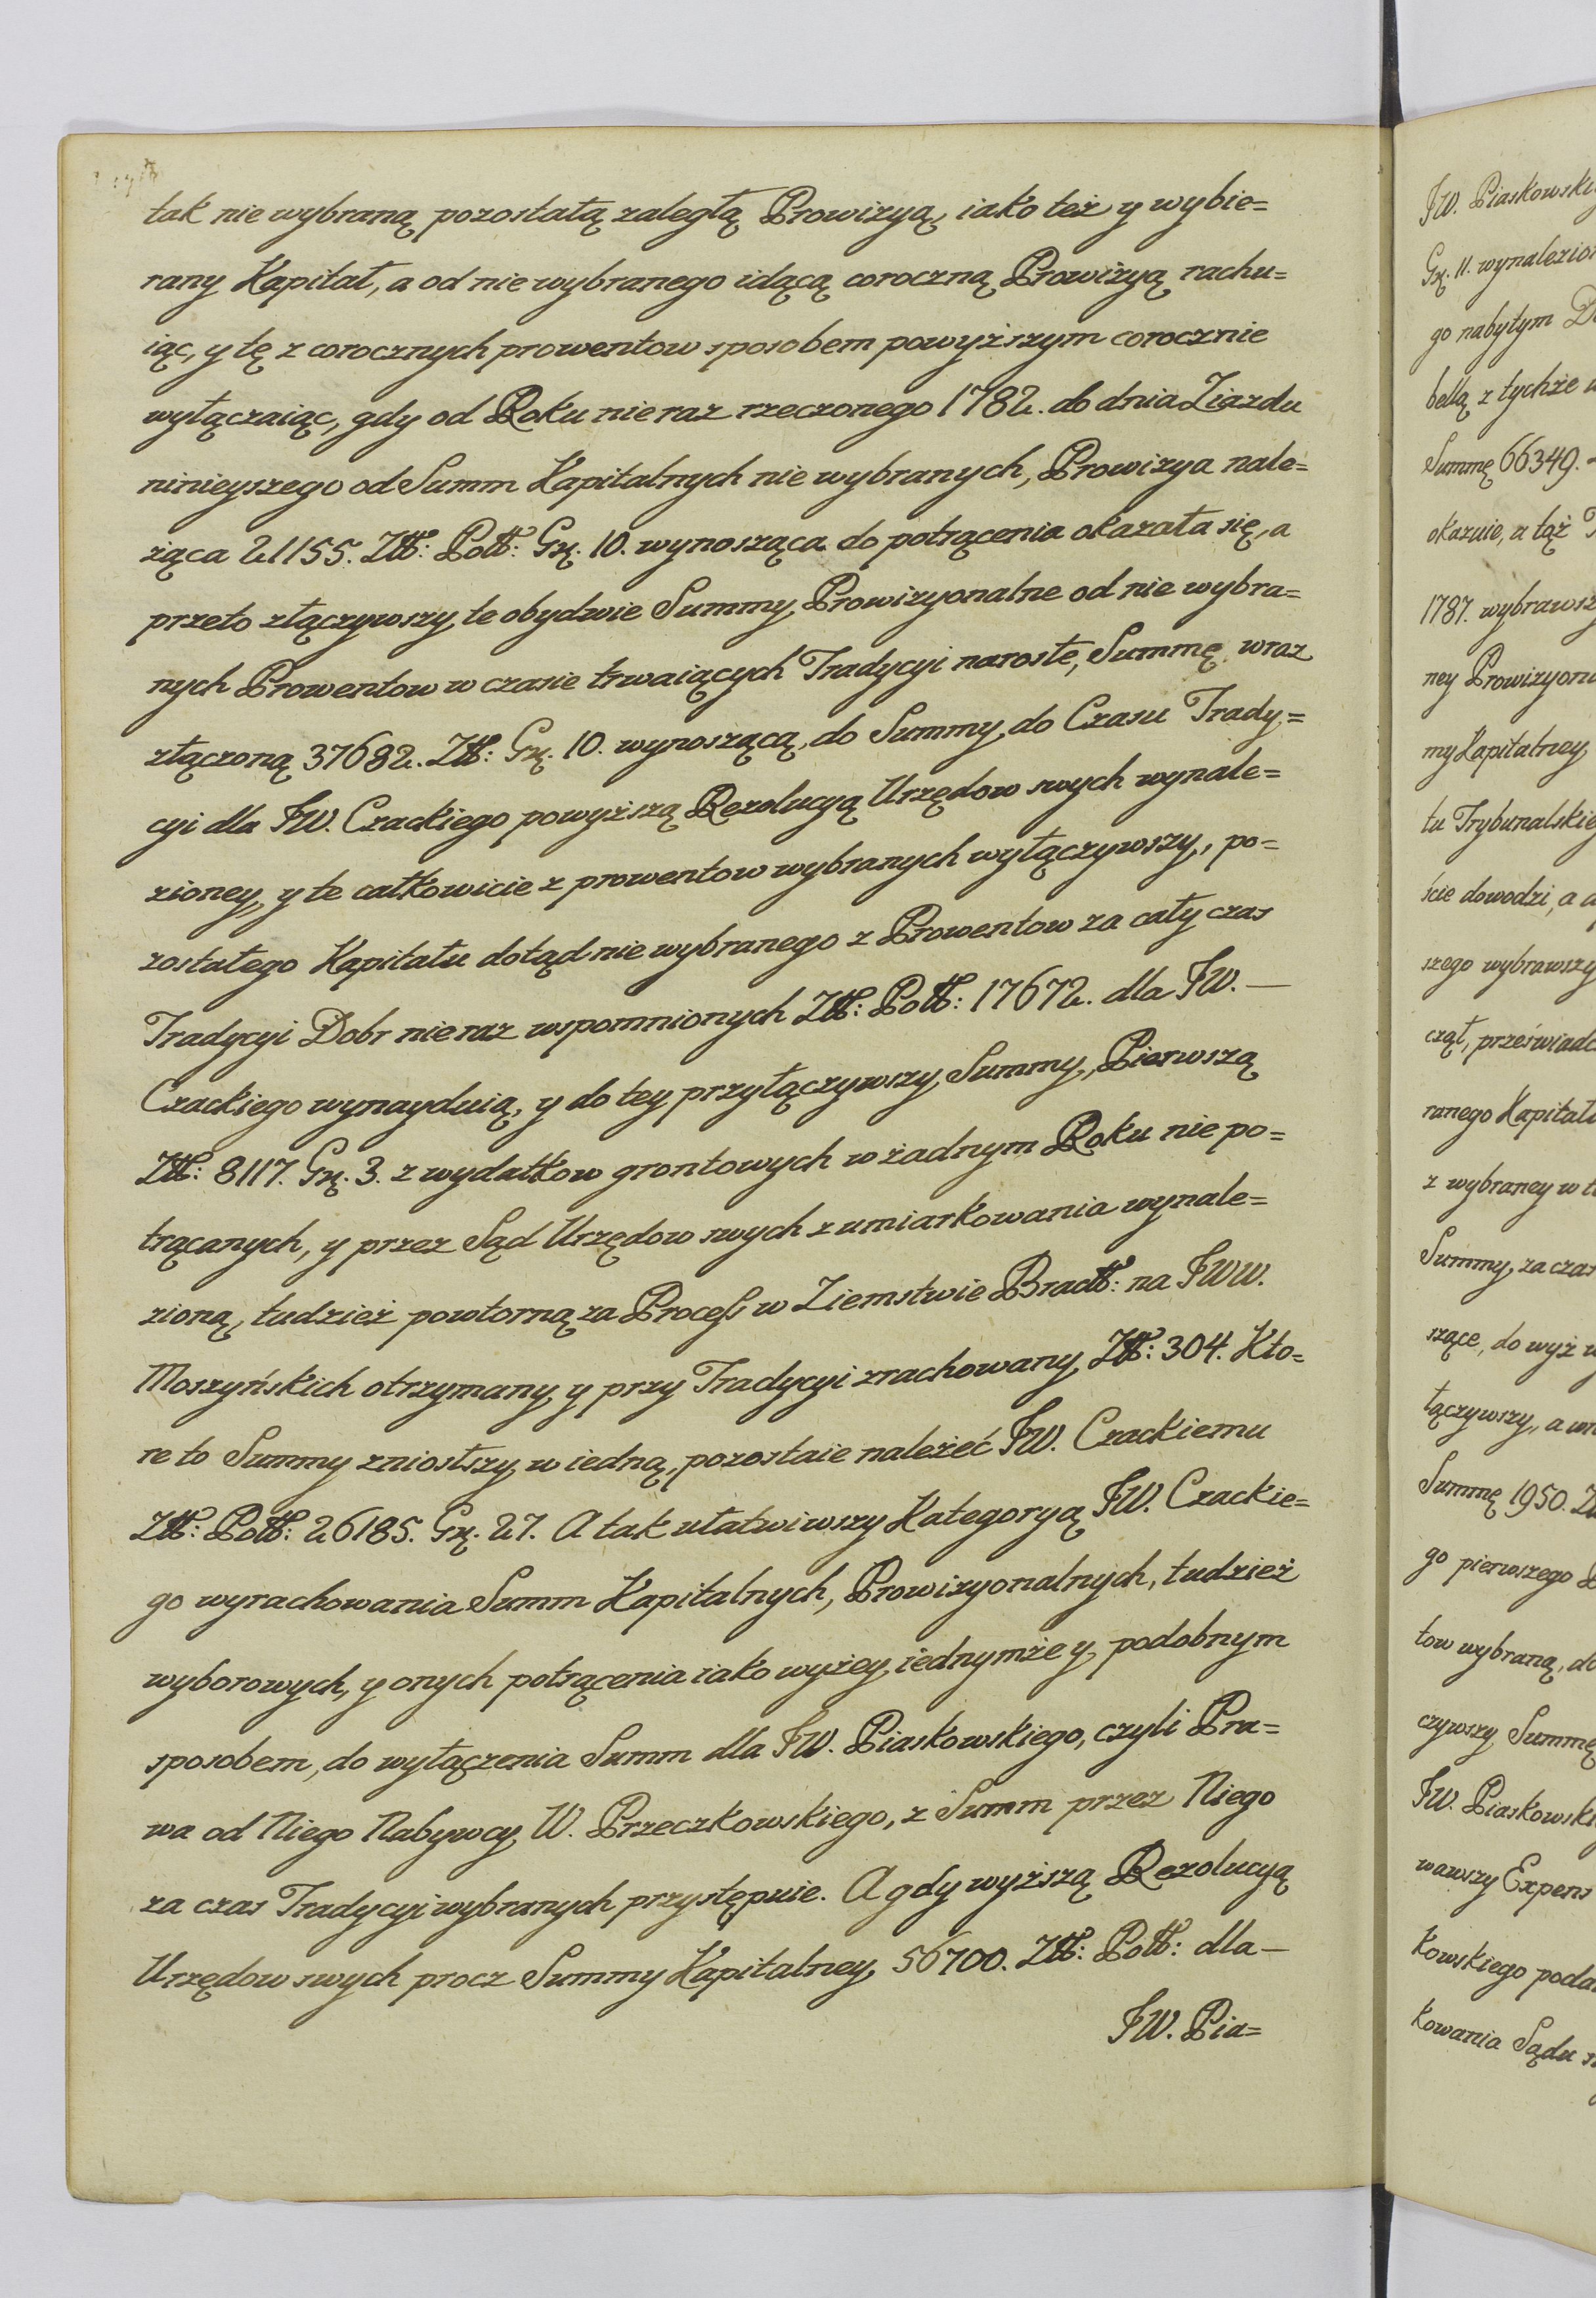 tak nie wybraną pozostałą zaległą Prowizyą, iako też y wybie=
rany Kapitał, a od nie wybranego idącą coroczną Prowizyą rachu=
iąc, y tę z corocznych prowentow sposobem powyższym corocznie
wyłączaiąc, gdy od Roku nie raz rzeczonego 1782. do dnia Ziazdu
ninieyszego od Summ Kapitalnych nie wybranych, Prowizya nale=
żąca 21155. Złł: Poll: Gr. 10. wynosząca do potrącenia okazała się, a
przeto złączywszy te obydwie Summy Prowizyonalne od nie wybra=
nych Prowentow w czasie trwaiących Tradycyi narosłe, Summę wraz
złączoną 37682. Złł: Gr. 10. wynoszącą, do Summy do Czasu Trady=
cyi dla JW. Czackiego powyższą Rezolucyą Urzędow swych wynale=
zioney, y te całkowicie z prowentow wybranych wyłączywszy, po=
zostałego Kapitału dotąd nie wybranego z Prowentow za cały czas
Tradycyi Dobr nie raz wspomnionych Złł: Poll: 17672. dla JW. —
Czackiego wynayduią, y do tey przyłączywszy Summy, Pierwszą
Złł: 8117. Gr. 3. z wydatkow grontowych w żadnym Roku nie po=
trącanych, y przez Sąd Urzędow swych z umiarkowania wynale=
zioną, tudzież powtorną za Process w Ziemstwie Bracll: na JWW.
Moszyńskich otrzymany y przy Tradycyi zrachowany Złł: 304. Kto=
re to Summy zniosłszy w iedną, pozostaie należeć JW. Czackiemu
Złł: Poll: 26185. Gr. 27. A tak ułatwiwszy Kategoryą JW. Czackie=
go wyrachowania Summ Kapitalnych, Prowizyonalnych, tudzież
wyborowych, y onych potrącenia iako wyżey iednymże y podobnym
sposobem, do wyłączenia Summ dla JW. Piaskowskiego, czyli Pra=
wa od Niego Nabywcy W. Przeczkowskiego, z Summ przez Niego
za czas Tradycyi wybranych przystępuie. A gdy wyższą Rezolucyą
Urzędow swych procz Summy Kapitalney 56700. Złł: Poll: dla —
JW. Pia=
JW. Piaskowski
Gr. 11. wynalezion
go nabytym
bellą z tychże
Summę 66349.
okazuie, a tąż
1787. wybrawsz
ney Prowizyon
my Kapitalney
tu Trybunalskie
ście dowodzi, a
szego wybrawszy
czął, przeświadc
ranego Kapitał
z wybraney w
Summy, za czas
szące, do wyż
łączywszy, a
Summę 1950.
go pierwszego
tow wybraną, do
czywszy Summę
JW. Piaskowski
wawszy Expens
kowskiego poda
kowania Sądu